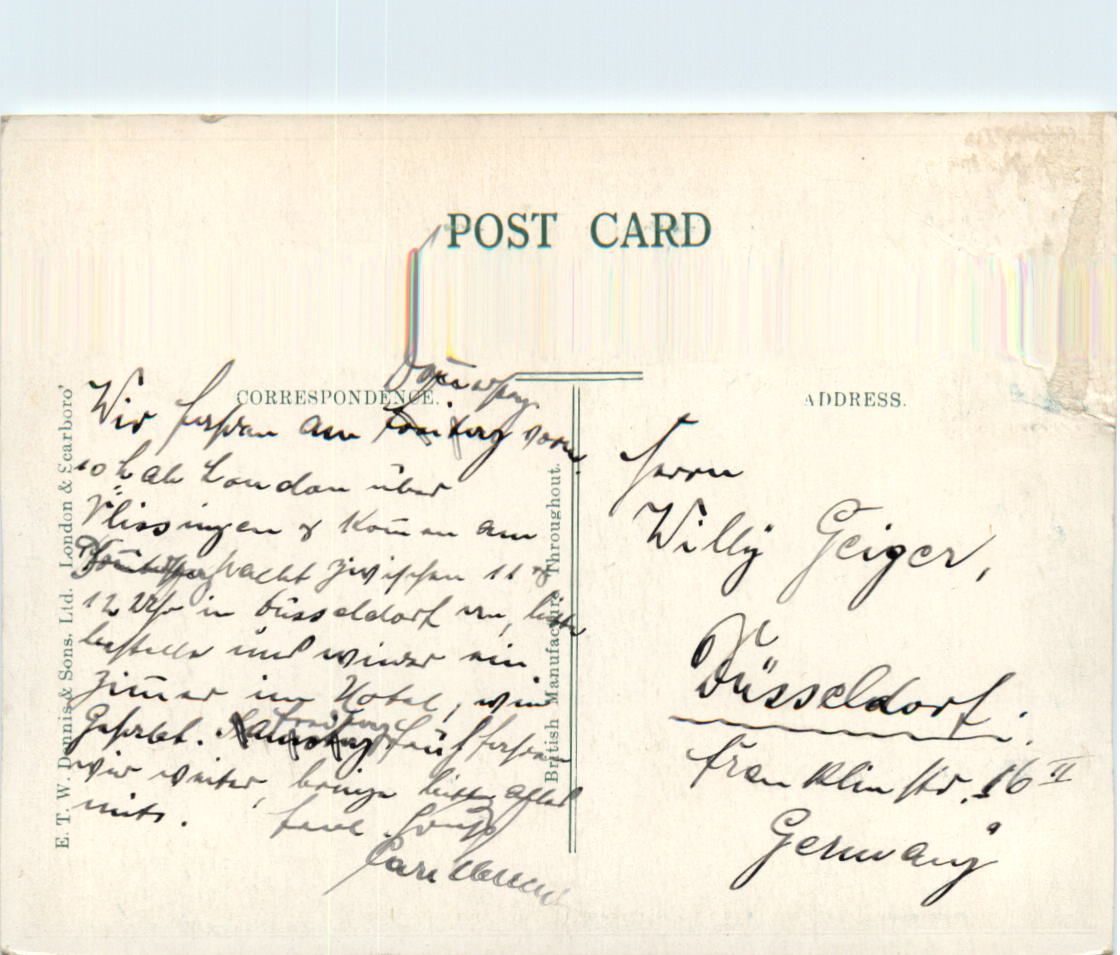 POST CARD
CORRESPONDENCE.
ADDRESS.
E. T. W. Dennis & Sons, Ltd. London & Scarboro'
British Manufacture Throughout.
Donnerstag
Wir fahren am Freitag vorm.
10 h ab London über
Vlissingen & kom̄en am
Nacht zwischen 11 &
12 Uhr in Düsseldorf an, bitte
bestelle uns wieder ein
Zim̄er im Hotel, wie
gehabt. Samstag früh fahren
Freitag
wir weiter, bringe bitte alles
mit.
Carl
Herrn
Willy Geiger,
Düsseldorf.
Franklinstr. 16 II
Germany